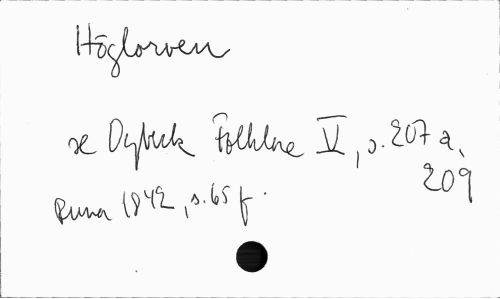 Höglorven
se Dybeck Folklore V, s. 207 a,
209
Runa 1842, s. 65 f.